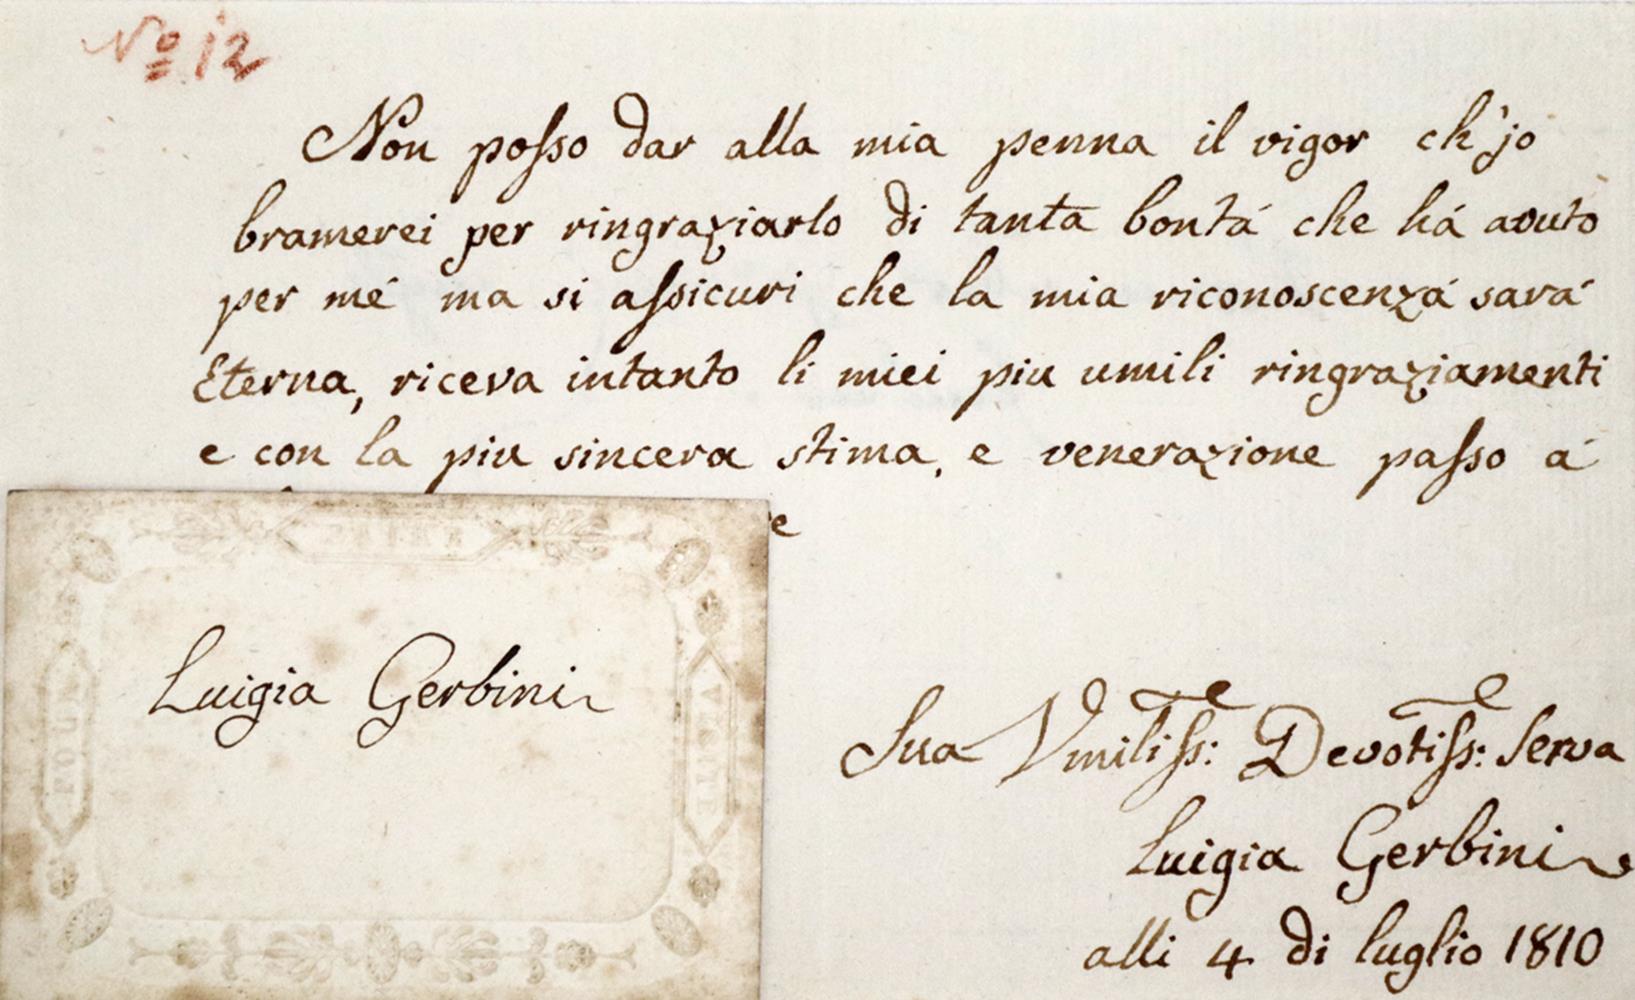 Nº 12
Non posso dar alla mia penna il vigor ch'jo
bramerei per ringraziarlo di tanta bontá che há avuto
per mé ma si assicuri che la mia riconoscenzá sará
Eterna, riceva intanto li miei piu umili ringraziamenti
e con la piu sincera stima, e venerazione passo á
Sua Vmiliss: Devotiss: Serva
Luigia Gerbini
alli 4 di luglio 1810
Luigia Gerbini
VISITE